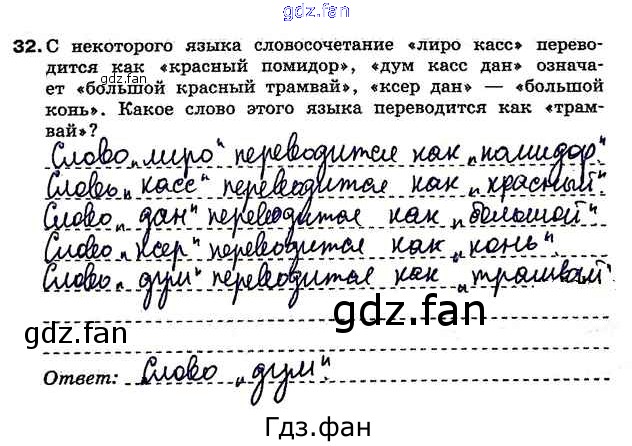 gdz.fan
32. С некоторого языка словосочетание «лиро касс» перево-
дится как «красный помидор», «дум касс дан» означа-
ет «большой красный трамвай», «ксер дан» — «большой
конь». Какое слово этого языка переводится как «трам-
вай»?
Слово „лиро" переводится как „помидор".
Слово „касс" переводится как „красный".
Слово „дан" переводится как „большой".
Слово „ксер" переводится как „конь".
Слово „дум" переводится как „трамвай".
gdz.fan
gdz.fan
Ответ: Слово „дум".
Гдз.фан